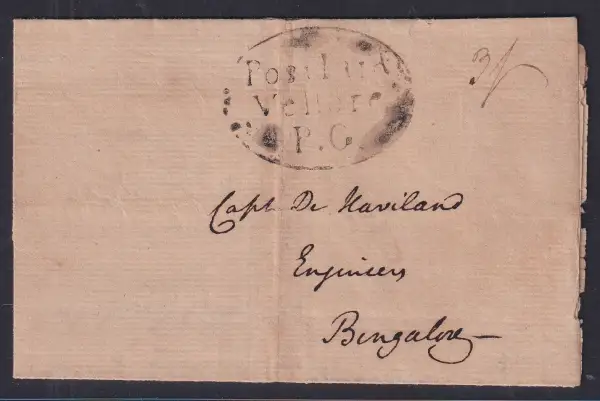 Post Paid
Vellore
P.O.
3/
Capt De Haviland
Engineers
Bengalore